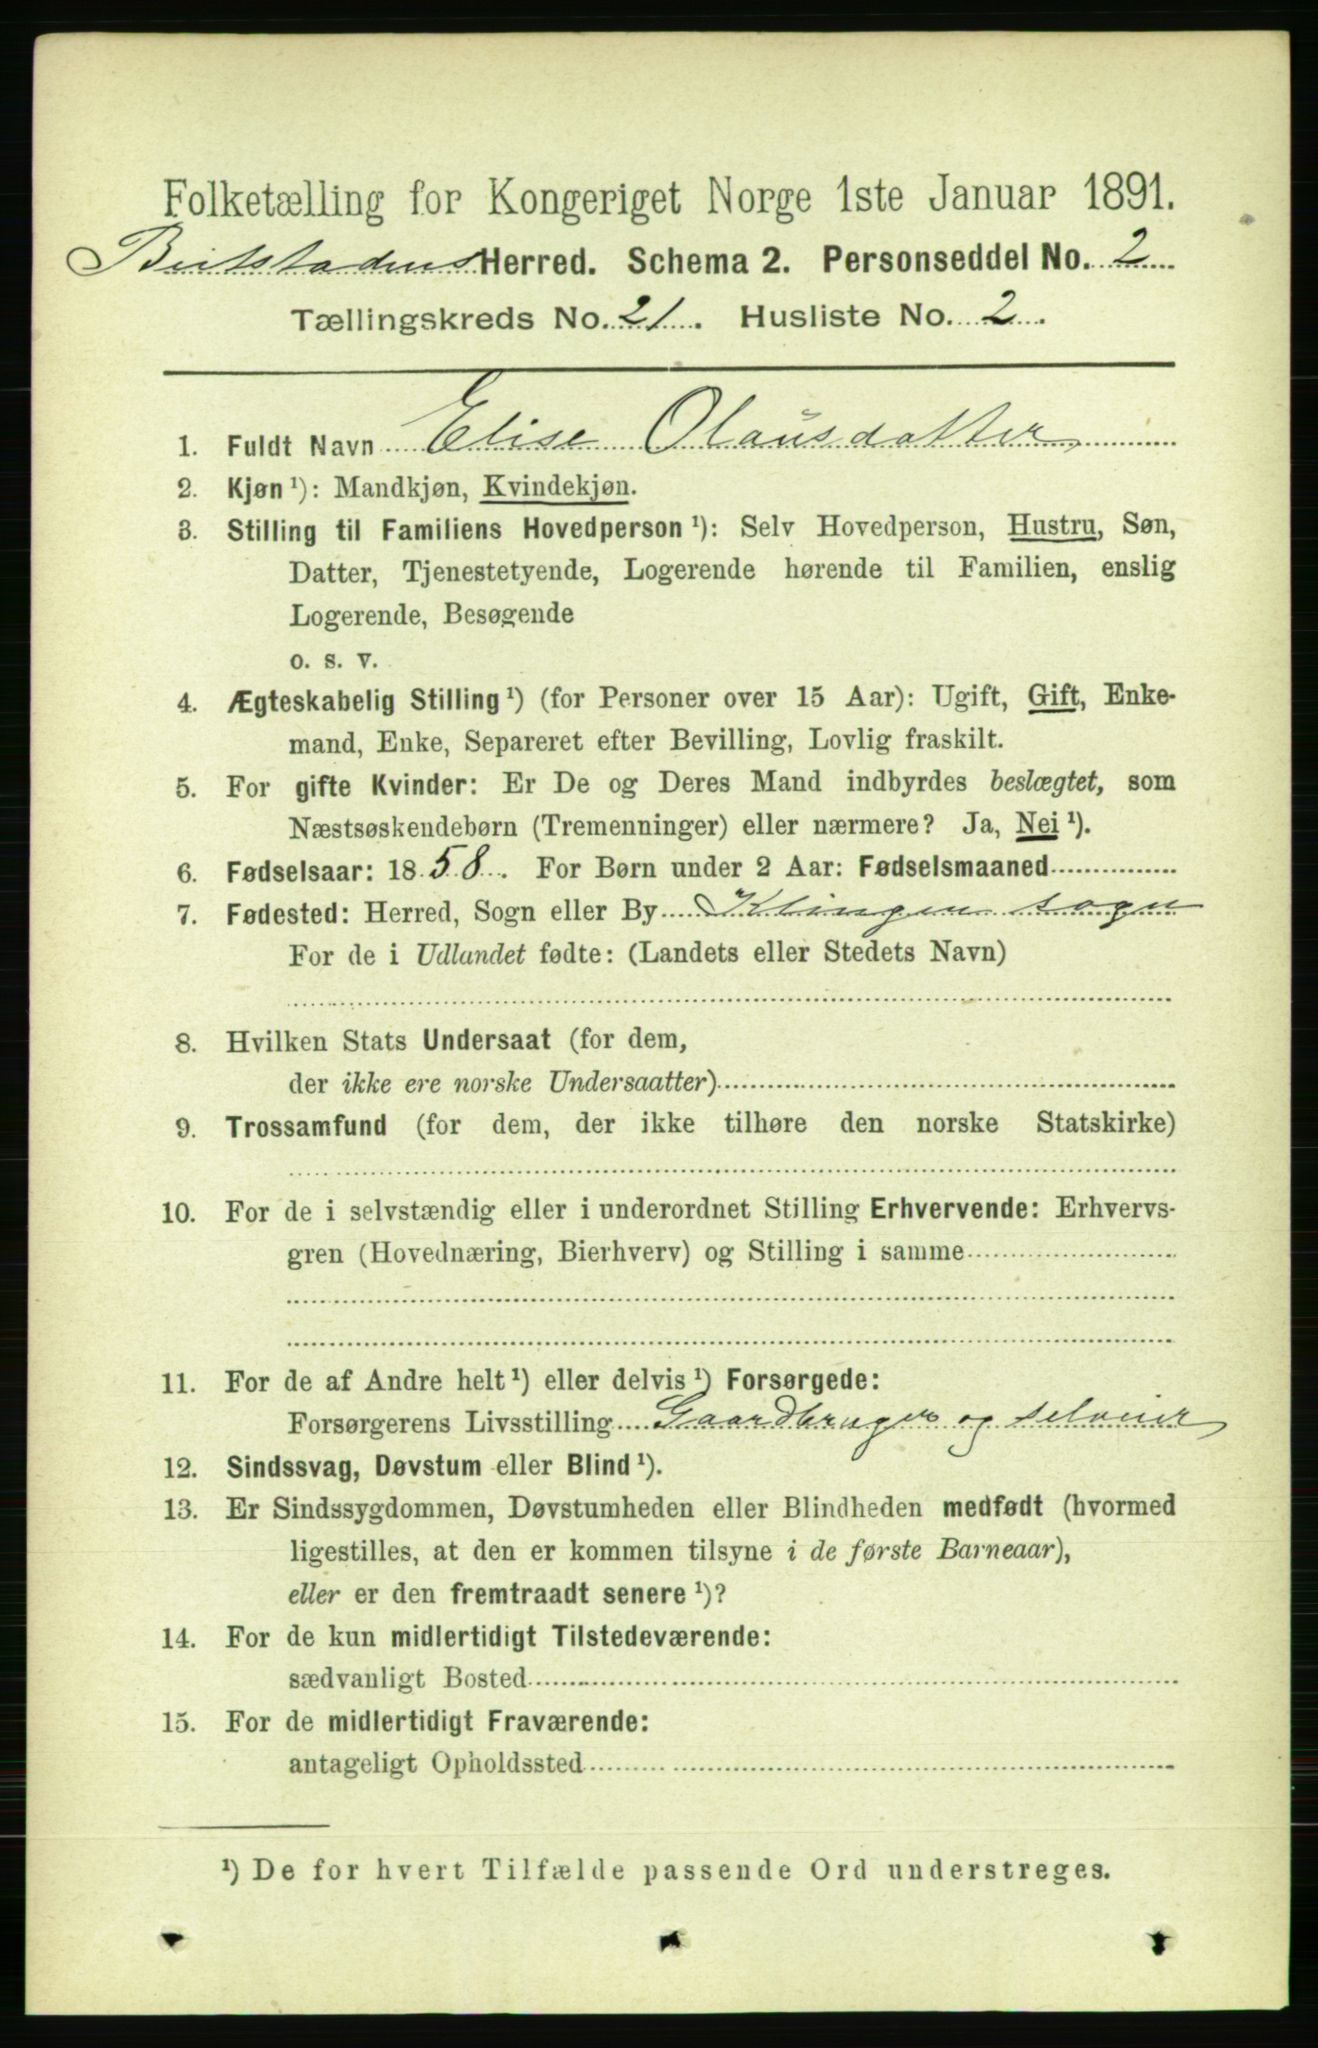 Folketælling for Kongeriget Norge 1ste Januar 1891.
Beitstadens Herred. Schema 2. Personseddel No. 2
Tællingskreds No. 21. Husliste No. 2
1. Fuldt Navn Elise Olausdatter
2. Kjøn ¹): Mandkjøn, Kvindekjøn.
3. Stilling til Familiens Hovedperson ¹): Selv Hovedperson, Hustru, Søn,
Datter, Tjenestetyende, Logerende hørende til Familien, enslig
Logerende, Besøgende
o. s. v.
4. Ægteskabelig Stilling ¹) (for Personer over 15 Aar): Ugift, Gift, Enke-
mand, Enke, Separeret efter Bevilling, Lovlig fraskilt.
5. For gifte Kvinder: Er De og Deres Mand indbyrdes beslægtet, som
Næstsøskendebørn (Tremenninger) eller nærmere? Ja, Nei ¹).
6. Fødselsaar: 1858. For Børn under 2 Aar: Fødselsmaaned
7. Fødested: Herred, Sogn eller By Klingen sogn
For de i Udlandet fødte: (Landets eller Stedets Navn)
8. Hvilken Stats Undersaat (for dem,
der ikke ere norske Undersaatter)
9. Trossamfund (for dem, der ikke tilhøre den norske Statskirke)
10. For de i selvstændig eller i underordnet Stilling Erhvervende: Erhvervs-
gren (Hovednæring, Bierhverv) og Stilling i samme
11. For de af Andre helt ¹) eller delvis ¹) Forsørgede:
Forsørgerens Livsstilling Gaardbruger og seloeier
12. Sindssvag, Døvstum eller Blind ¹).
13. Er Sindssygdommen, Døvstumheden eller Blindheden medfødt (hvormed
ligestilles, at den er kommen tilsyne i de første Barneaar),
eller er den fremtraadt senere ¹)?
14. For de kun midlertidigt Tilstedeværende:
sædvanligt Bosted
15. For de midlertidigt Fraværende:
antageligt Opholdssted
¹) De for hvert Tilfælde passende Ord understreges.